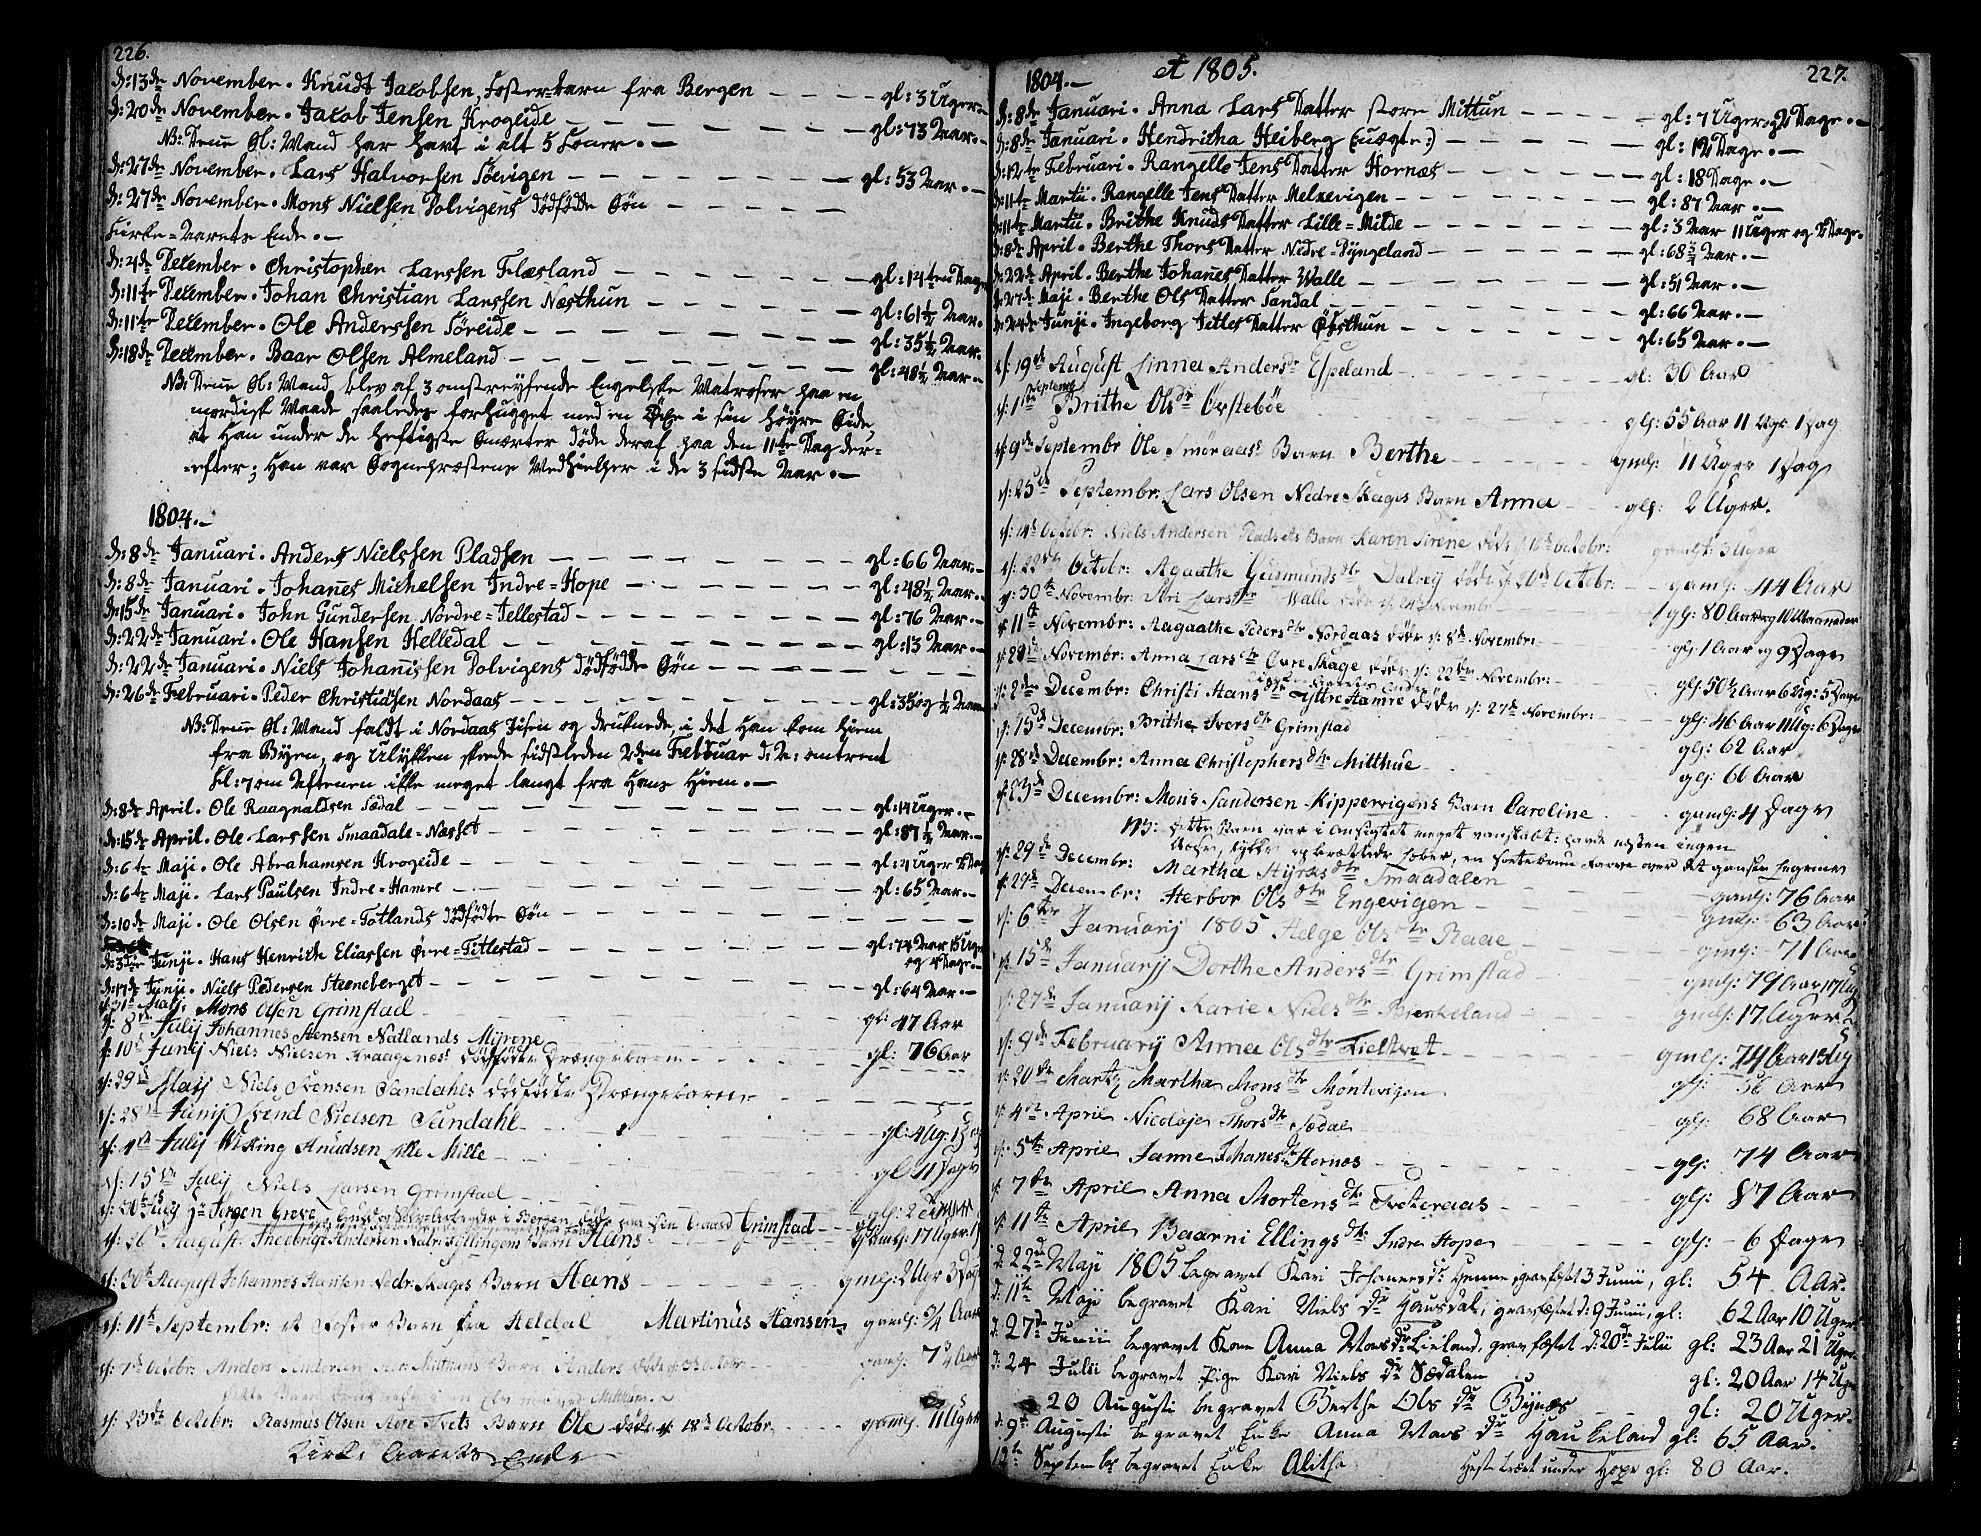 226.
D: 13de November. Knudt Jacobsen, Fosterbarn fra Bergen — gl: 3 Uger.
D: 20de November. Jacob Jensen Krogeide — gl: 73 Aar.
NB: Denne Sl: Mand har havt i alt 5 Koner.
D: 27de November. Lars Halvorsen Søevigen — gl: 53 Aar.
D: 27de November. Mons Nielsen Solvigens dødfødte Søn
Kirke-Aarets Ende.
D: 4de December. Christopher Larssen Flæsland — gl: 14 Dage
D: 11te December. Johan Christian Larssen Næsthun — gl: 61 1/2 Aar.
D: 11te December. Ole Anderssen Søreide — gl: 35 1/2 Aar.
D: 18de December. Baar Olsen Almeland — gl: 48 1/2 Aar.
NB: Denne Sl: Mand blev af 3 omstreyfende Engelske Matroser paa en
mordisk Maade saaledes forhugget med en Øxe i sin høyre Side,
at han under de heftigste Smerter døde deraf paa den 11te Dag der-
efter; han var Sognepræstens Medhielper i de 3 sidste Aar.
1804.
D: 8de Januari. Anders Nielssen Pladsen — gl: 66 Aar.
D: 8de Januari. Johanes Michelsen Indre-Hope — gl: 48 1/2 Aar.
D: 15de Januari. John Gundersen Nordre-Tellestad — gl: 76 Aar.
D: 22de Januari. Ole Hansen Helledal — gl: 13 Aar.
D: 22de Januari. Niels Johanissen Solvigens dødfødte Søn
D: 26de Februari. Peder Christiasen Nordaas — gl: 35 og 1/2 Aar
NB: Denne Sl: Mand faldt i Nordaas Isen og druknede, i det han kom hiem
fra Byen, og Ulykken skede sidstleden 2den Februar d: A: omtrent
Kl: 7 om Aftenen ikke meget langt fra hans Hiem.
D: 8de April. Ole Raagnaldsen Sædal — gl: 14 Uger.
D: 15de April. Ole Larssen Smaadale-Næsset — gl: 87 1/2 Aar.
D: 6te Maji. Ole Abrahamsen Krogeide — gl: 4 Uger
D: 6te Maji. Lars Paulsen Indre-Hamre — gl: 65 Aar.
D: 10de Maji. Ole Olsen Øvre-Totlands dødfødte Søn
D: 3die Junji. Hans Henrich Eliassen Øvre-Titlestad — gl: 74 Aar 15 Uger
og 4 Dage.
D: 17de Junji. Niels Pedersen Steeneberget — gl: 64 Aar.
d: 31te Maij. Mons Olsen Grimstad — gl: 47 Aar
d: 8de Julij Johannes Hansen Natlands Myrene — gl: 76 Aar
d: 10de Junij Niels Nielsen Kraagenes dødfødte Drengebarn
d: 29de Maij Niels Svensen Sandahls dødfødte Drengebarn
d: 28de Junij Svend Nielsen Sandahl — gl: 4 Ug: 1 Dag
d: 4de Julij Wiking Knudsen Lille Milde — gl: 11 Dage
d: 15de Julij Niels Larsen Grimstad
d: 20de Julij Hr Jørgen Greve, Guld og Sølv-Arbeider i Bergen døde paa sin Gaard Grimstad
d: 26de August. Ingebrigt Andersen Nedre Tyllingens Barn Hans — gaml: 17 Uger
d: 30te August Johannes Hansen Nedre Skages Barn Hans — gmlg: 2 Aar 3 Dage
d: 11te Septembr: et Foster Barn fra Heldal Martinus Hansen — gaml: 5/4 Aar
d: 7de Octobr: Anders Andersen Mittuns Barn Anders — gaml: 7/4 Aar
dette Barn
d: 23de Octobr: Rasmus Olsen Tvets Barn Ole døde d: 18de Octobr. — gamlg. 11 Uger
Kirke Aarets Ende

1804. et 1805. 227.
D: 8de Januari. Anna Lars Datter store Mittun — gl: 7 Uger og 2 Dage.
D: 8de Januari. Hendricha Heiberg (: uægte :) — gl: 12 Dage.
D: 12te Februari. Rangelle Jens Datter Hornæs — gl: 18 Dage.
D: 11te Martii. Rangelle Jens Datter Melkevigen — gl: 87 Aar.
D: 11te Martii. Brithe Knuds Datter Lille-Milde — gl: 3 Aar 11 Uger og 2 Dage.
D: 8de April. Berthe Thors Datter Nedre-Dyngeland — gl: 68 3/4 Aar.
D: 22de April. Berthe Johanes Datter Walle — gl: 51 Aar.
D: 27de Maji. Berthe Ols Datter Sandal — gl: 66 Aar.
D: 24de Junji. Ingeborg Jetles Datter Øvsthun — gl: 65 Aar.
d: 19de August Sinna Andersdr Espeland — gl: 30 Aar
d: 1ste Septembr Brithe Olsdr Øvstebøe — glg: 55 Aar 11 Ugr 1 Dag
d: 9de Septembr Ole Smøraas Barn Berthe — gmlg: 11 Uger 1 Dag
d: 25de Septembr: Lars Olsen Nedre Skages Barn Anna — glg: 2 Uger.
d: 14de Octobr: Niels Andersen Pladsets Barn Karen Sirene døde d: 10de Octobr: — gamlg: 3 Uger
d: 23de Octobr: Agaathe Gudmundsdr Dalsey døde d: 20de Octobr: — gamlg: 44 Aar
d: 30te Novembr: Siri Larsdr Walle døde d: 24de Novembr — glg: 80 Aar og 10 Maaneder
d: 11te Novembr: Aagaathe Pedersdtr Nordaas døde d: 8de Novembr: — gl: 1 Aar og 9 Dage
d: 28de Novembr: Anna Larsdtr Øvre Skage døde d: 22de Novembr: — glg 50 Aar 6 Ug: 5 Dage
d: 2den Decembr: Christi Hansdtr Ystre Hamre døde d: 27de Novembr: — glg: 46 Aar 11 Ug: 6 Dage
d: 15de Decembr: Brithe Iversdtr Grimstad — glg: 62 Aar
d: 28de Decembr: Anna Christophersdtr Mitthue — glg: 66 Aar
d: 23de Decembr: Mons Sandersen Kippervigens Barn Caroline — gamlg: 4 Dage
NB: dette Barn var i Ansigtet meget vanskabt: havde næsten ingen
Næse, tykke opbrættede Læber, en sortebrun Farve over det gandske Legeme
d: 29de Decembr: Martha Styrksdtr Smaadalen — gamlg: 76 Aar
d: 29de Decembr: Herbor Olsdtr Engevigen — gmlg: 63 Aar
d: 6te Januarij 1805 Helge Olsdtr Raae — gmlg: 71 Aar
d: 15de Januarij Dorthe Andersdtr Grimstad — gmlg: 79 Aar 17 Ug
d: 27de Januarij Karie Nielsdtr Birkeland — gmlg: 17 Uger
d: 9de Februarij Anna Olsdtr Tieltvet — gmlg: 74 Aar 13 Ug
d: 20de Martij Martha Monsdtr Møntevigen — glg: 56 Aar
d: 4de April Nicolaje Thorsdtr Sædal — glg: 68 Aar
d: 5te April Janne Johanesdtr Hornes — glg: 74 Aar
d: 7de April Anna Mortensdtr Tveteraas — glg: 87 Aar
d: 11te April Baarni Ellingsdtr Indre Hope — glg: 6 Dage
d: 22de Maji 1805 begravet Kari Johannesdr Henne, gravfæstet 3 Junii, gl: 54 Aar.
d: 11te Maji begravet Kari Niels dr Hausdal, gravfæstet d: 9 Junii, gl: 62 Aar 10 Uger
d: 27de Junii begravet Kone Anna Monsdr Lieland, gravfæstet d: 20de Julii gl: 23 Aar 21 Uger.
d: 24 Julii begravet Pige Kari Niels dr Sædalen gl: 20 Aar 14 Uger
20 Augusti begravet Berthe Ols dr Bynæs gl: 20 Uger.
d: 9de Augusti begravet Enke Anna Mons dr Haukeland gl: 65 Aar.
12te Septembr begravet Enke Alitha Hestetræet under Hope gl: 80 Aar.